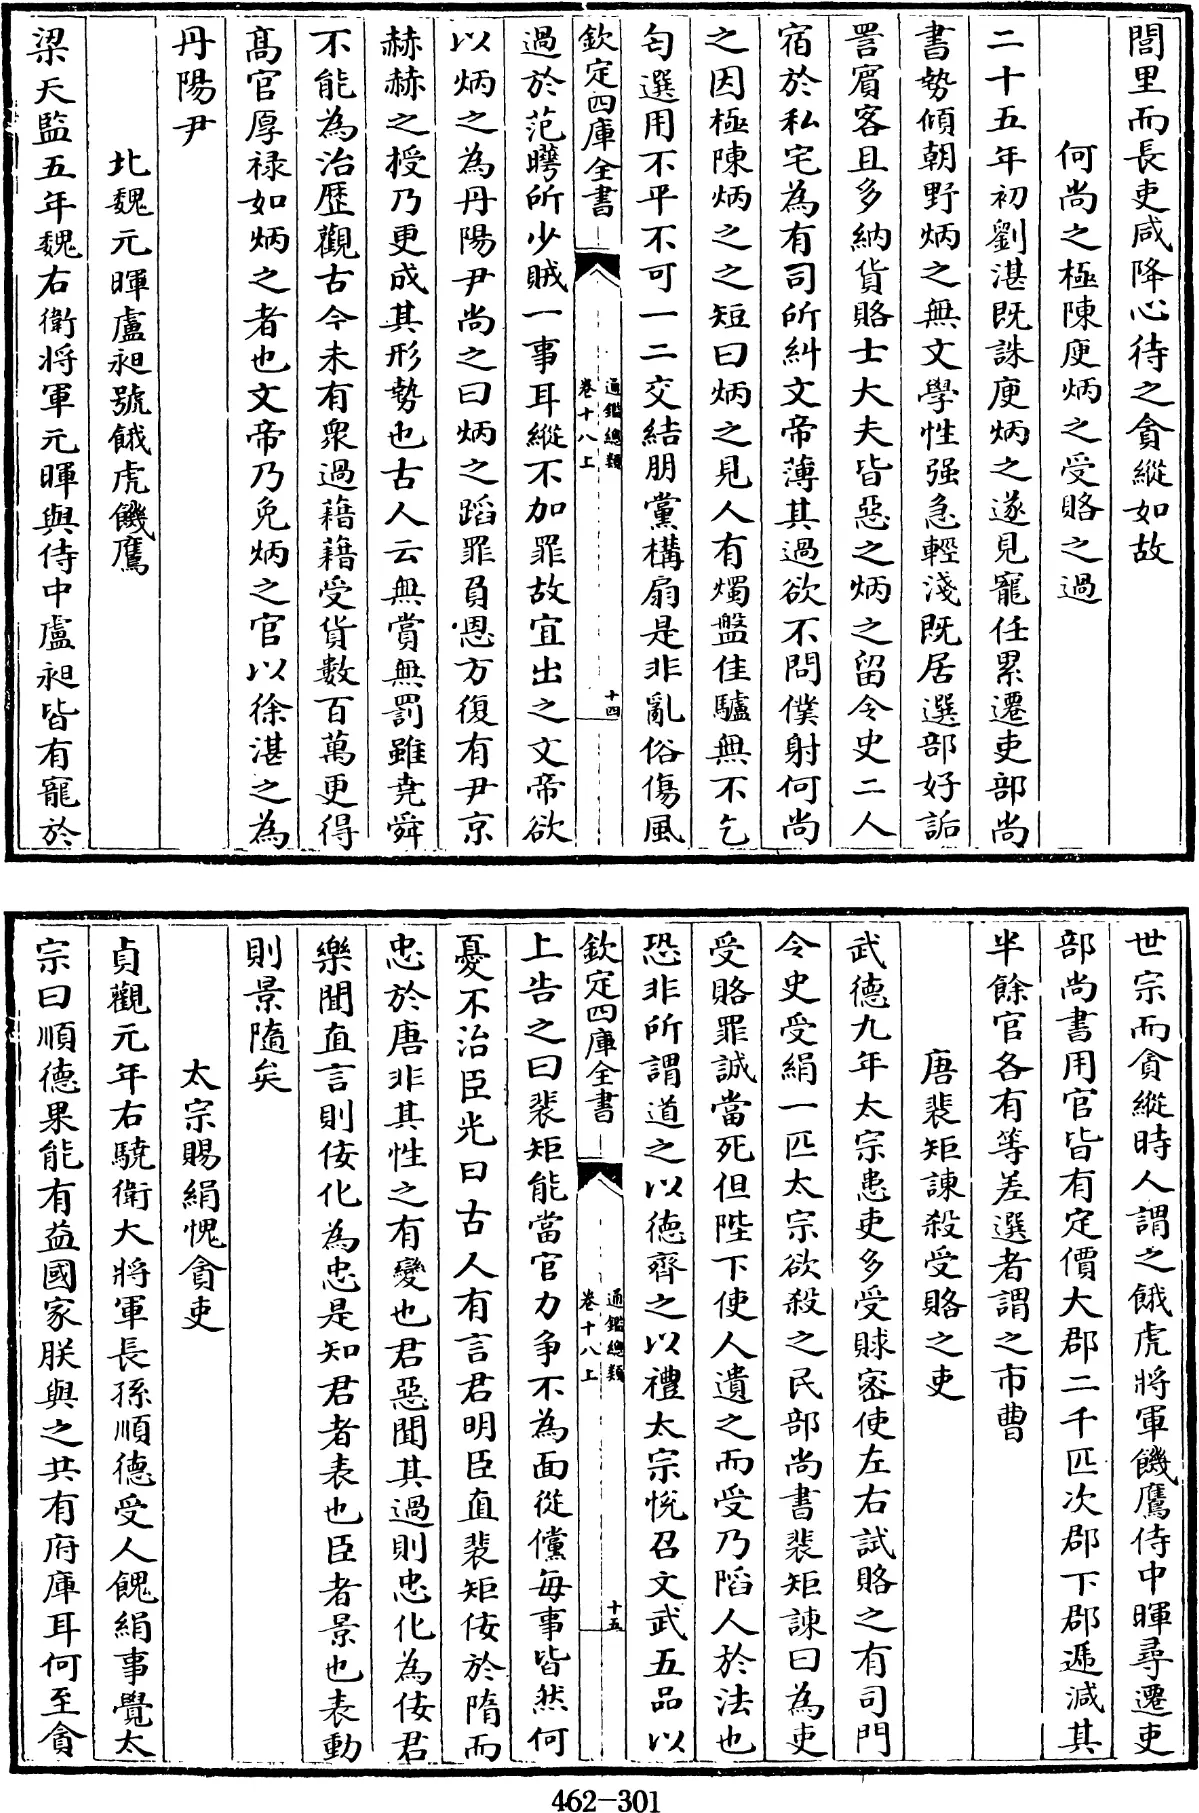 閭里而長吏咸降心待之貪縱如故
何尚之極陳庾炳之受賂之過
二十五年初劉湛既誅庾炳之遂見寵任累遷吏部尚
書勢傾朝野炳之無文學性强急輕淺既居選部好詬
詈賔客且多納貨賂士大夫皆惡之炳之留令史二人
宿於私宅為有司所糾文帝薄其過欲不問僕射何尚
之因極陳炳之之短曰炳之見人有燭盤佳驢無不乞
匄選用不平不可一二交結朋黨構扇是非亂俗傷風
欽定四庫全書
通鑑總類
卷十八上
十四
過於范曄所少賊一事耳縱不加罪故宜出之文帝欲
以炳之為丹陽尹尚之曰炳之蹈罪負恩方復有尹京
赫赫之授乃更成其形勢也古人云無賞無罰雖堯舜
不能為治歴觀古今未有衆過藉藉受貨數百萬更得
髙官厚禄如炳之者也文帝乃免炳之官以徐湛之為
丹陽尹
北魏元暉盧昶號餓虎饑鷹
梁天監五年魏右衛將軍元暉與侍中盧昶皆有寵於
世宗而貪縱時人謂之餓虎將軍饑鷹侍中暉尋遷吏
部尚書用官皆有定價大郡二千匹次郡下郡遞減其
半餘官各有等差選者謂之市曹
唐裴矩諫殺受賂之吏
武德九年太宗患吏多受賕密使左右試賂之有司門
令史受絹一匹太宗欲殺之民部尚書裴矩諫曰為吏
受賂罪誠當死但陛下使人遺之而受乃陷人於法也
恐非所謂道之以德齊之以禮太宗悅召文武五品以
欽定四庫全書
通鑑總類
卷十八上
十五
上告之曰裴矩能當官力争不為面從儻每事皆然何
憂不治臣光曰古人有言君明臣直裴矩佞於隋而
忠於唐非其性之有變也君惡聞其過則忠化為佞君
樂聞直言則佞化為忠是知君者表也臣者景也表動
則景隨矣
太宗賜絹愧貪吏
貞觀元年右驍衛大將軍長孫順德受人餽絹事覺太
宗曰順德果能有益國家朕與之共有府庫耳何至貪
462-301